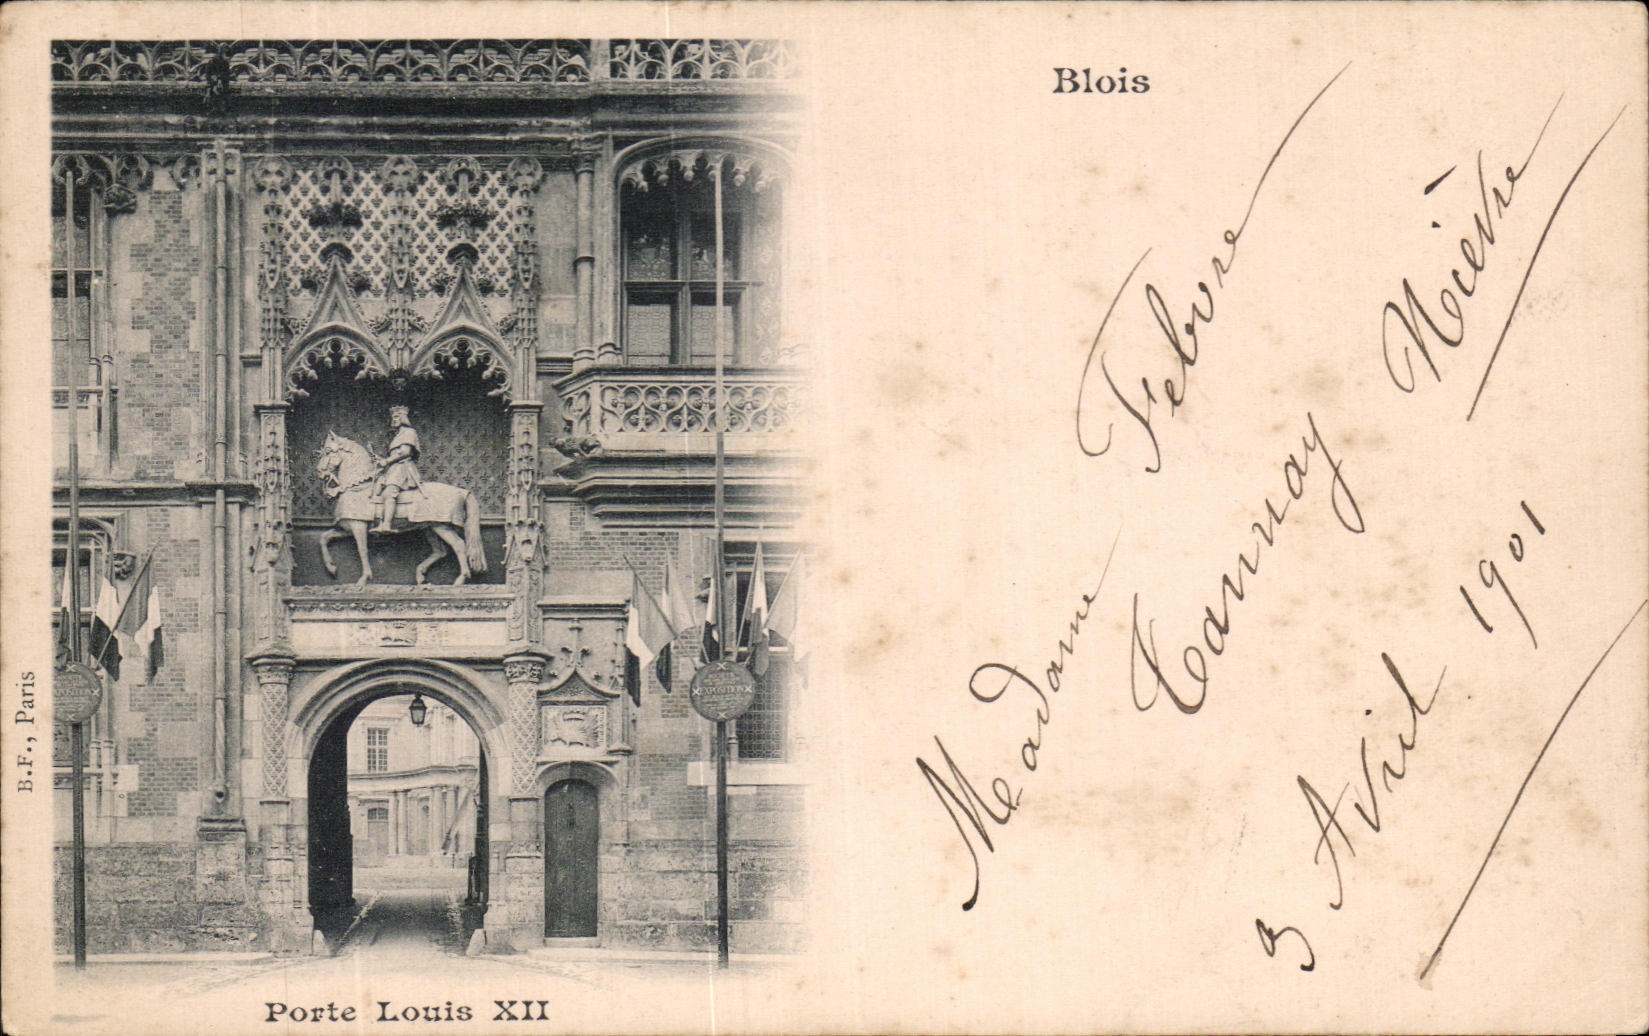 Blois
Madame Febvre
Tannay Nièvre
3 Avril 1901
EXPOSITION
Porte Louis XII
B.F., Paris